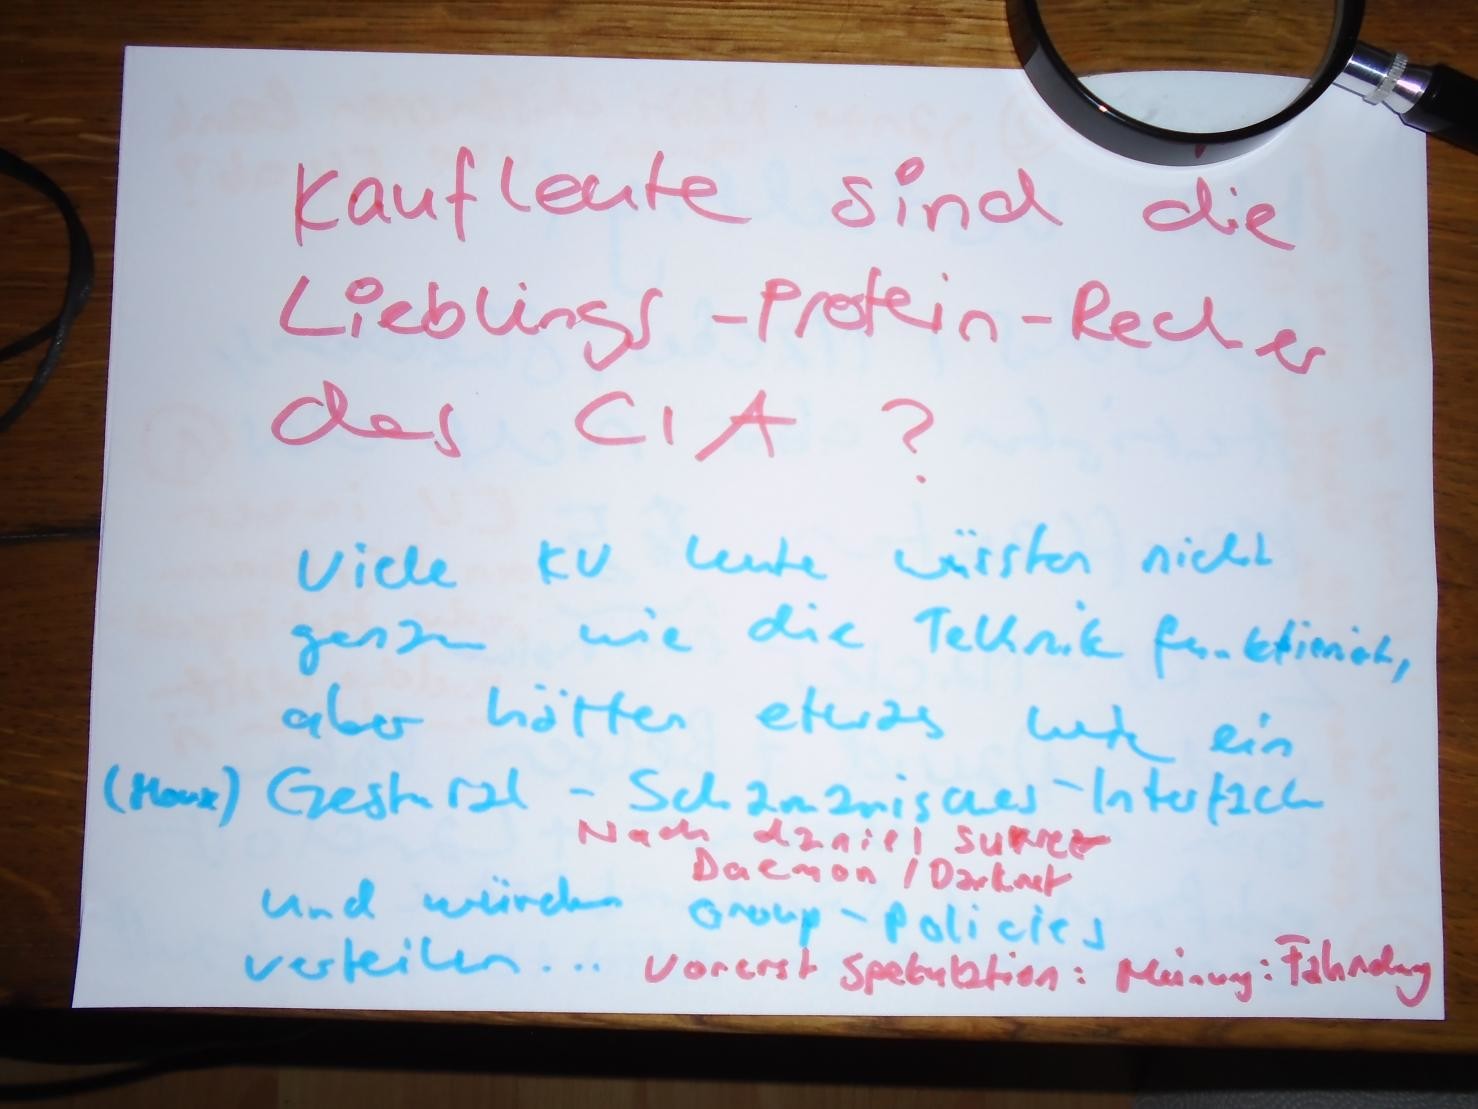 Kaufleute sind die
Lieblings-Protein-Recher
des CIA ?
Viele KV leute wüssten nicht
genau wie die Technik funktioniert,
aber hätten etwas wie ein
(Haux) Gestural - Schamanisches-Interface
Nach daniel suarez
Daemon / Darknet
und würden Group-Policies
verteilen... Vorerst Spekulation: Meinung: Fahndung